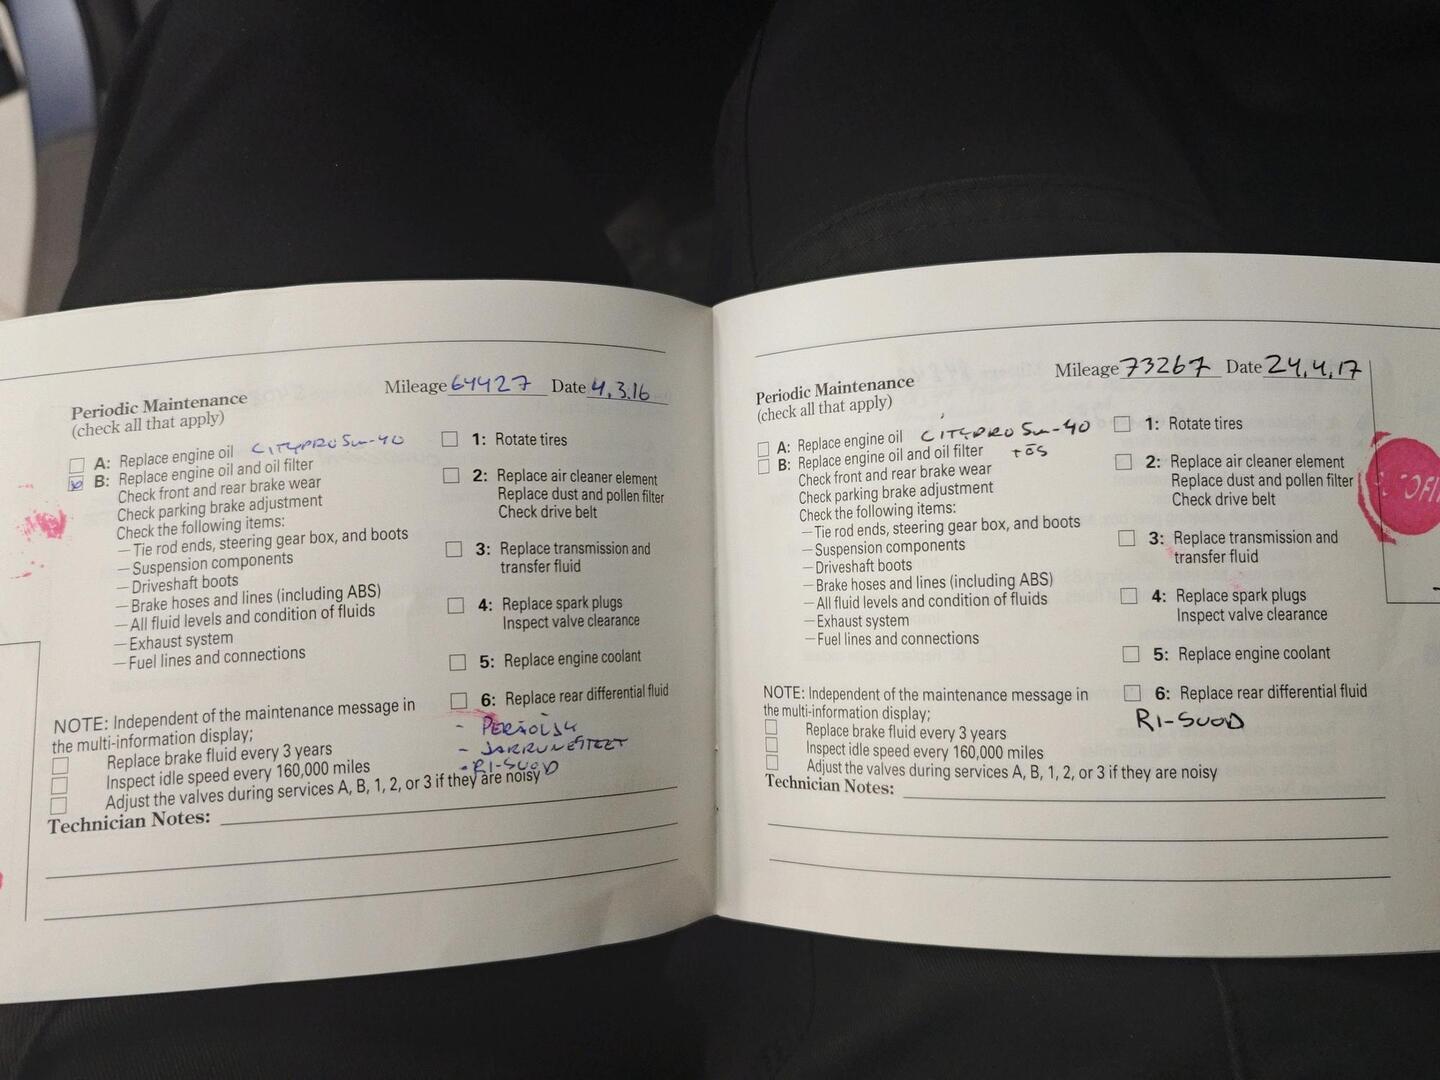 Periodic Maintenance
(check all that apply)
Mileage 64427 Date 4.3.16
A: Replace engine oil CITYPRO 5W-40
B: Replace engine oil and oil filter
Check front and rear brake wear
Check parking brake adjustment
Check the following items:
– Tie rod ends, steering gear box, and boots
– Suspension components
– Driveshaft boots
– Brake hoses and lines (including ABS)
– All fluid levels and condition of fluids
– Exhaust system
– Fuel lines and connections
1: Rotate tires
2: Replace air cleaner element
Replace dust and pollen filter
Check drive belt
3: Replace transmission and
transfer fluid
4: Replace spark plugs
Inspect valve clearance
5: Replace engine coolant
6: Replace rear differential fluid
- PERÄÖLJY
- JARRUNESTEET
- RI-SUOD
NOTE: Independent of the maintenance message in
the multi-information display;
Replace brake fluid every 3 years
Inspect idle speed every 160,000 miles
Adjust the valves during services A, B, 1, 2, or 3 if they are noisy
Technician Notes:
Periodic Maintenance
(check all that apply)
Mileage 73267 Date 24.4.17
A: Replace engine oil CITYPRO 5W-40
B: Replace engine oil and oil filter + ÖS
Check front and rear brake wear
Check parking brake adjustment
Check the following items:
– Tie rod ends, steering gear box, and boots
– Suspension components
– Driveshaft boots
– Brake hoses and lines (including ABS)
– All fluid levels and condition of fluids
– Exhaust system
– Fuel lines and connections
1: Rotate tires
2: Replace air cleaner element
Replace dust and pollen filter
Check drive belt
3: Replace transmission and
transfer fluid
4: Replace spark plugs
Inspect valve clearance
5: Replace engine coolant
6: Replace rear differential fluid
RI-SUOD
NOTE: Independent of the maintenance message in
the multi-information display;
Replace brake fluid every 3 years
Inspect idle speed every 160,000 miles
Adjust the valves during services A, B, 1, 2, or 3 if they are noisy
Technician Notes: